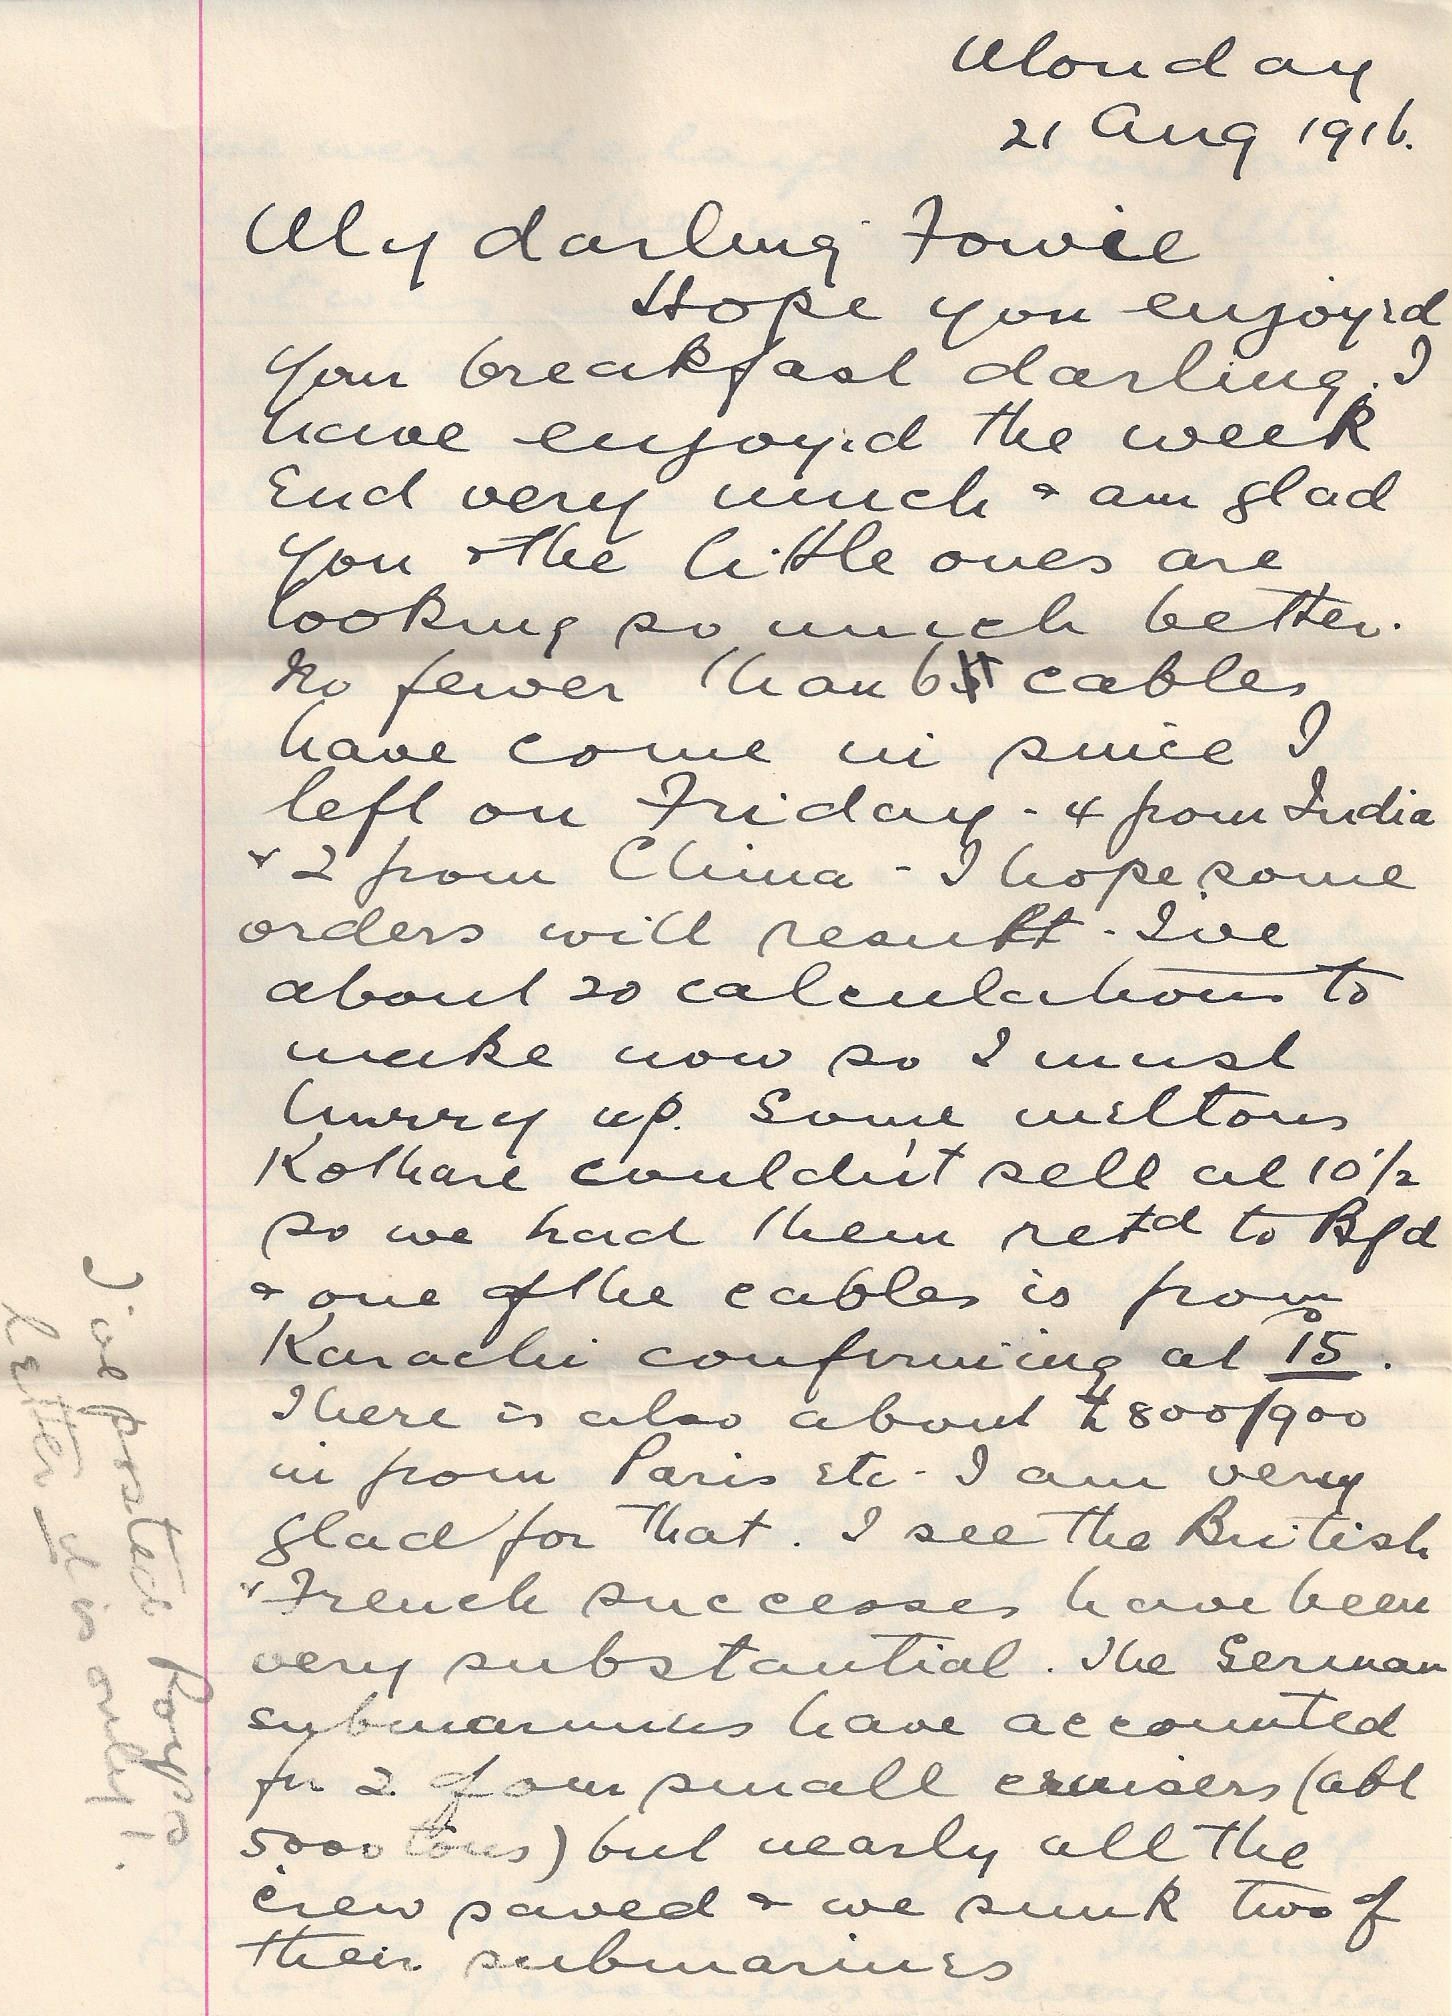 Monday
21 Aug 1916.
My darling Fowie
Hope you enjoy'd
your breakfast darling. I
have enjoy'd the week
End very much & am glad
you & the little ones are
looking so much better.
No fewer than 6 cables
have come in since I
left on Friday - 4 from India
& 2 from China - I hope some
orders will result. I've
about 20 calculations to
make now so I must
hurry up. Some meltons
Kothare couldn't sell at 10½
so we had them retd to Bfd
& one of the cables is from
Karachi confirming at 15.
There is also about £800/900
in from Paris etc - I am very
glad for that. I see the British
& French successes have been
very substantial. The German
submarines have accounted
for 2 of our small cruisers (abt
5000 tons) but nearly all the
crew saved & we sunk two of
their submarines
I've posted
letter - it is only